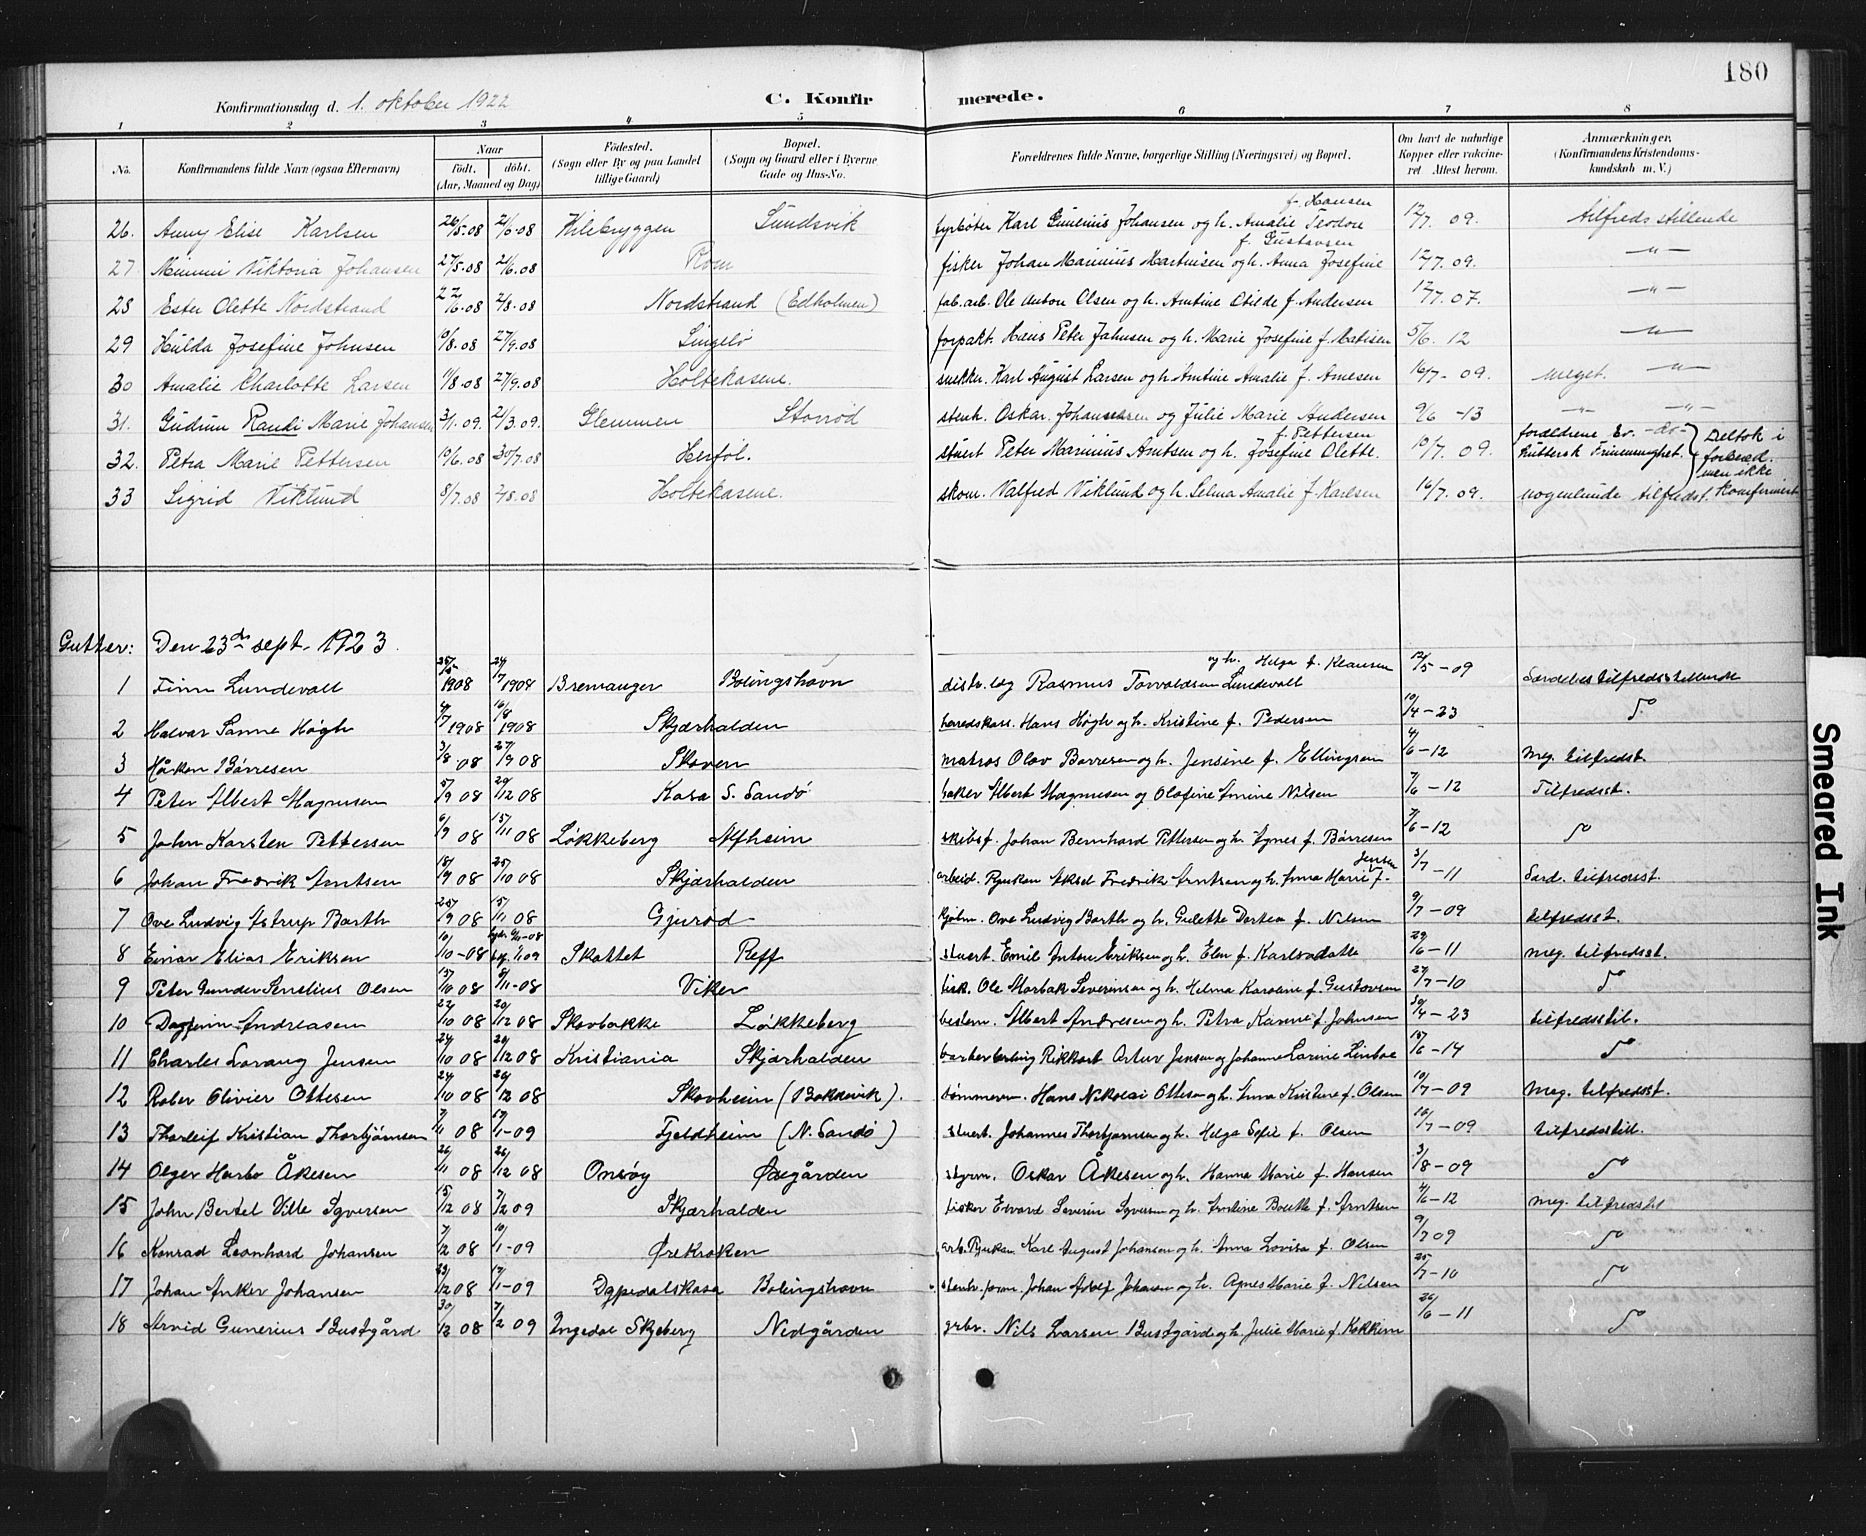 180
Konfirmationsdag d. 1. oktober 1922 C. Konfir merede.
1 2 3 4 5 6 7 8
No. Konfirmandens fulde Navn (ogsaa Efternavn) Naar født. døbt. (Aar, Maaned og Dag) Fødested. (Sogn eller By og paa Landet tillige Gaard) Bopæl. (Sogn og Gaard eller i Byerne Gade og Hus-No. Forældrenes fulde Navne, borgerlige Stilling (Næringsvei) og Bopæl. Om havt de naturlige Kopper eller vakcineret. Attest herom. Anmærkninger. (Konfirmandens Kristendomskundskab m. V.)
26. Anny Elise Karlsen 26/5.08 21/6.08 Kilebryggen Sundsvik fyrbøter Karl Johansen og h. Amalie Teodore f. Hansen 12/7. 09. tilfredsstillende
27 Mimmi Viktoria Johansen 27/5.08 21/6.08 Rom fisker Johan Marinius Martinsen og h. Anna Josefine f. Gustavsen 12/7. 09. -"-
28 Ester Olette Nordstrand 22/6.08 2/8.08 Nordstrand (Edholmen) fab.arb. Ole Anton Olsen og h. Amtine Otilde f. Andersen 12/7. 07. -"-
29 Hulda Josefine Johnsen 9/8.08 27/9.08 Singelö forpakt. Hans Peter Johnsen og h. Marie Josefine f. Matisen 5/6. 12 -"-
30 Amalie Charlotte Larsen 11/8.08 27/9.08 Holtekasene. snekker. Karl August Larsen og h. Amtine Amalie f. Arnesen 16/7 - 09. meget. -"-
31. Gudrun Randi Marie Johansen 3/1.09. 21/3.09. Glemmen Storrød stenh. Oskar Johansen og Julie Marie Andersen 9/6 -13 -"- -"-
32. Petra Marie Pettersen 19/6.08 30/7.08 Herføl. stuert Peter Marinius Arntsen og h. Josefine Olette f. Pettersen 10/7. 09. foreldrene Ev. Luthersk Frimenighet. Deltok i forbered. men ikke konfirmert
33 Sigrid Viklund 8/7.08 2/8.08 Holtekasene. skom. Valfred Viklund og h. Selma Amalie f. Karlsen 16/7. 09. nogenlunde tilfredst.
Gutter: Den 23de sept. 1923.
1 Finn Lundevall 25/5 1908 24/7 1908 Bremanger Bølingshavn distr.læg Rasmus Torvaldsen Lundevall og h. Helga f. Klausen 12/5 - 09 Særdeles tilfredsstillende
2 Halvar Sanne Høgh 4/7 1908 16/8 1908 Skjærhalden herredskass. Hans Høgh og h. Kristine f. Pedersen 10/4 - 23 do
3 Håkon Børresen 3/8 08 27/9 08 Skoven matros Olav Børresen og h. Jensine f. Ellingsen 4/6 - 12 meg. tilfredst.
4 Peter Albert Magnusen 5/9 08 20/12 08 Kasa S. Sandø baker Albert Magnusen og Olafine Amine Nilsen 7/6 - 12 Tilfredsst.
5 John Karsten Pettersen 6/9 08 15/11 08 Løkkeberg Alfheim skibsf. Johan Bernhard Pettersen og h. Agnes f. Børresen 7/6 - 12 do
6 Johan Fredrik Arntsen 18/9 08 25/10 08 Skjærhalden arbeid. Rjukan Aksel Fredrik Arntsen og h. Anna Marie f. Jensen 3/7 - 11 Særd. tilfredsst.
7 Ove Ludvig Astrup Barth 25/9 08 15/11 08 Gjurød kjølm. Ove Ludvig Barth og h. Gulette Dortea f. Nilsen 9/7 - 09 tilfredsst.
8 Einar Elias Eriksen 10/10 - 08 Skottet Reff stuert. Emil Anton Eriksen og h. Elen f. Karlsdatte 29/6 - 11 meg. tilfredsst.
9 Peter Gunder Olsen 15/10 08 8/11-08 Viker fisk. Ole Morbak Severinsen og h. Helma Karoline f. Gustavsen 27/7 - 10 do
10 Dagfinn Andreasen 22/10 08 20/12 08 Skovbakke Løkkeberg Albert Andresen og h. Petra Kanine f. Johnsen 30/4 - 23 tilfredsstil.
11 Charles Lorang Jensen 24/10 08 20/12 08 Kristiania Skjærhalden Rikkart Artur Jensen og Johanne Larine Linboe 15/6 - 14 do
12 Rober Olivier Ottesen 24/10 08 26/12 08 Skovheim (Bokkevik). tømmerm. Hans Nikolai Ottesen og h. Anna Kristine f. Olsen 10/7 - 09 Meg. tilfredsst.
13 Thorleif Kristian Thorbjørnsen 7/11 08 17/1-09 Fjeldheim (N. Sandø) stuert. Johannes Thorbjørnsen og h. Helga Sofie f. Olsen 10/7 - 09 tilfredsstill.
14 Olger Harbo Åkesen 26/11 08 26/12 08 Onsøy Ødegården styrm. Oskar Åkesen og h. Hanna Marie f. Hansen 3/8 - 09 do
15 John Bertel Ville Syversen 15/12 08 7/2 09 Skjærhalden fisker Edvard Severin Syversen og h. Arntine Bolette f. Arntsen 4/6 - 12 meg. tilfredsst
16 Konrad Leonhard Johansen 7/12 08 10/1-09 Ørekroken arb. Rjukan. Karl August Johansen og h. Anna Lovisa f. Olsen 9/7 09 do
17 Johan Anker Johansen 23/12 08 17/1-09 Dypedalskasa Bølingshavn stenh. Johan Adolf Johansen og h. Agnes Marie f. Nilsen 25/7 - 10 do
18 Arvid Gunerius Bustgård 30/12 08 7/2 09 Ingedal Skjeberg Nedgården grbr. Nils Larsen Bustgård og h. Julie Marie f. Kokkim 26/6 - 11 do
Smeared Ink